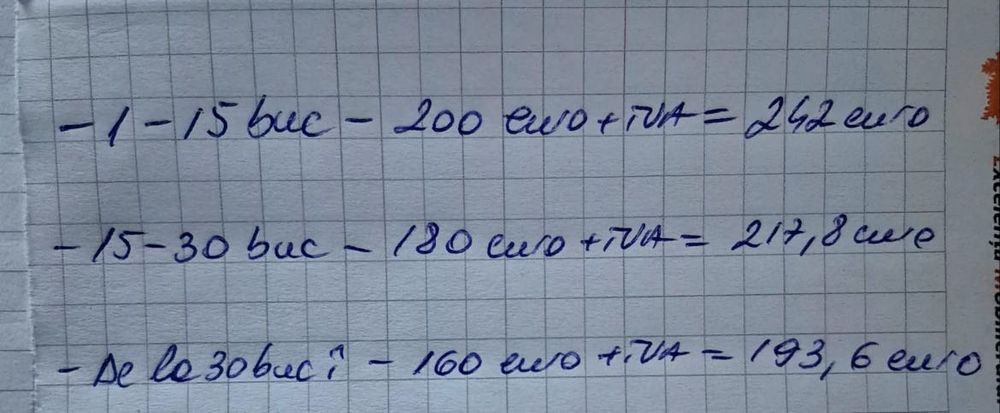 - 1 - 15 buc - 200 euro + iVA = 242 euro
- 15 - 30 buc - 180 euro + iVA = 217,8 euro
- De la 30 buc ↑ - 160 euro + iVA = 193,6 euro